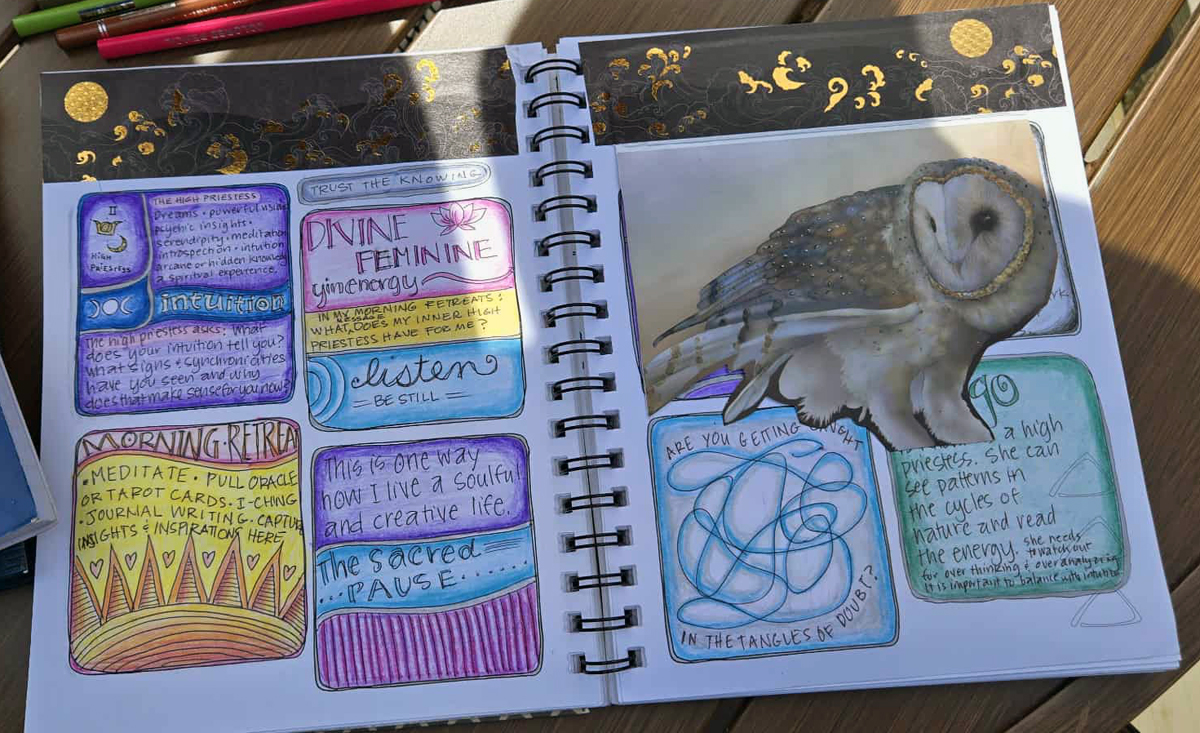 II
HIGH
PRIESTESS
THE HIGH PRIESTESS
Dreams • powerful using
psychic insights •
serendipity • meditation
introspection • intuition
arcane or hidden knowled
a spiritual experience.
intuition
The high priestess asks: What
does your intuition tell you?
what signs & synchronicities
have you seen and why
does that make sense for you now?
TRUST THE KNOWING
DIVINE
FEMININE
yin energy
IN MY MORNING RETREATS:
WHAT MESSAGE DOES MY INNER HIGH
PRIESTESS HAVE FOR ME?
listen
= BE STILL =
MORNING • RETREA
• MEDITATE • PULL ORACLE
OR TAROT CARDS • I-CHING
• JOURNAL WRITING • CAPTURE
INSIGHTS & INSPIRATIONS HERE
This is one way
how I live a soulful
and creative life.
The Sacred
...PAUSE......
rk
ARE YOU GETTING
IN THE TANGLES OF DOUBT?
go
a high
priestess. She can
see patterns in
the cycles of
nature and read
the energy. She needs
to watch out
for over thinking & over analyzing
It is important to balance with intuition